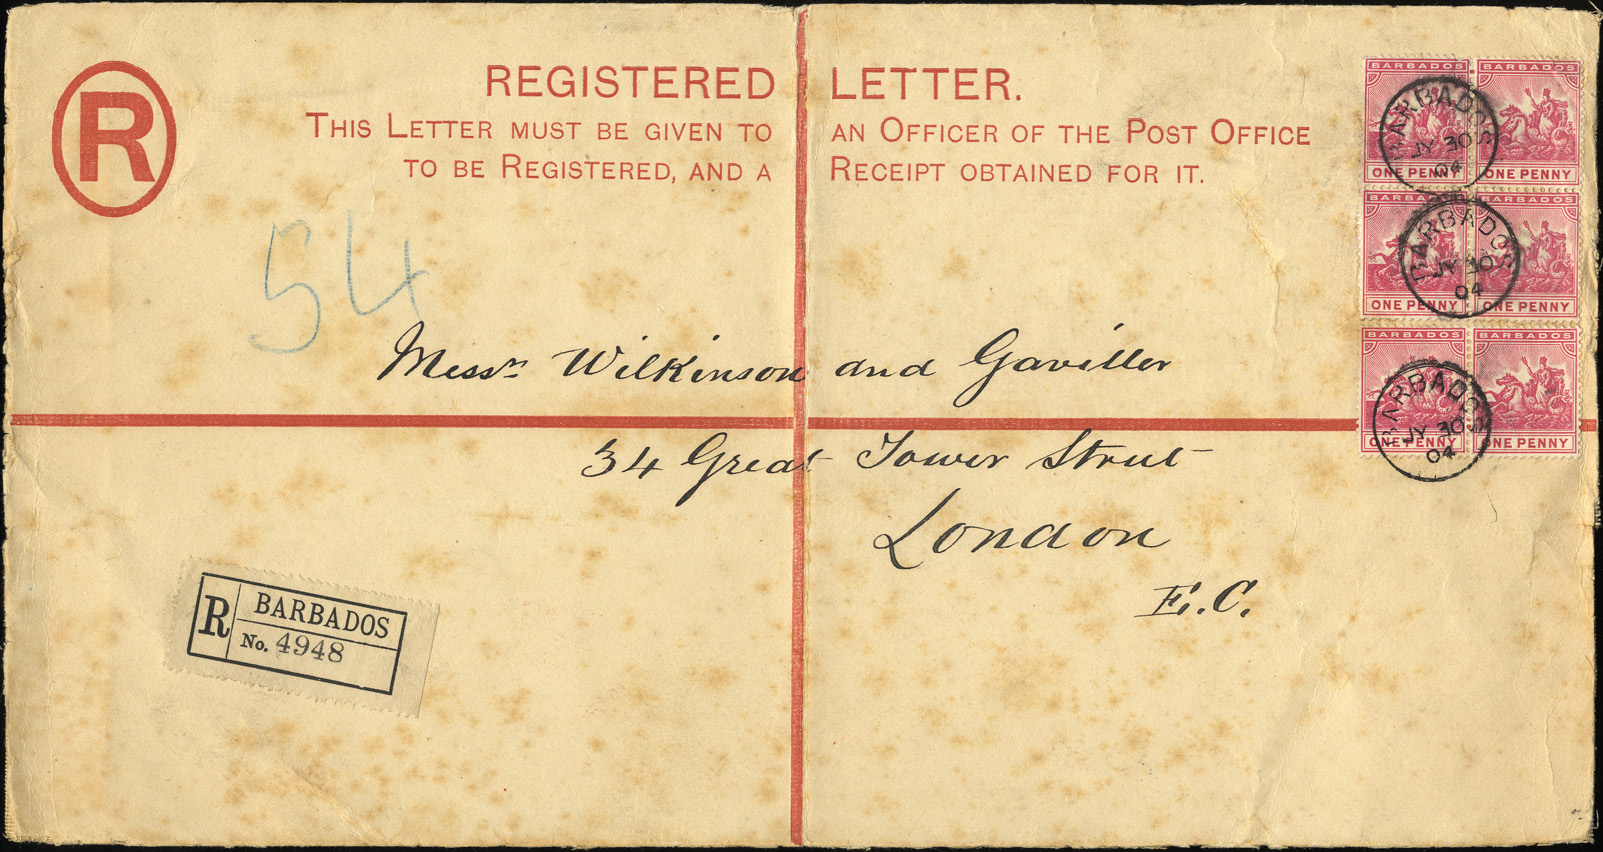 R
REGISTERED LETTER.
THIS LETTER MUST BE GIVEN TO AN OFFICER OF THE POST OFFICE
TO BE REGISTERED, AND A RECEIPT OBTAINED FOR IT.
BARBADOS BARBADOS
ONE PENNY ONE PENNY
BARBADOS
JY 30
04
BARBADOS BARBADOS
ONE PENNY ONE PENNY
BARBADOS
JY 30
04
BARBADOS BARBADOS
ONE PENNY ONE PENNY
BARBADOS
JY 30
04
54
Messrs Wilkinson and Gaviller
34 Great Tower Street
London
E.C.
R BARBADOS
No. 4948